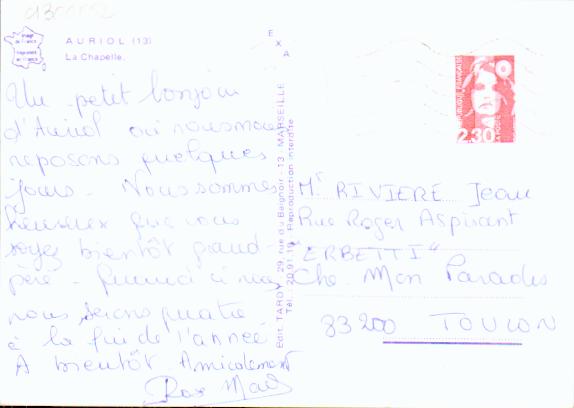 AURIOL (13)
La Chapelle.
EXA
Un petit bonjour
d'Auriol où nous nous
reposons quelques
jours - Nous sommes
heureux que vous
soyez bientôt grand-
père -
nous serons quatre
à la fin de l'année.
A bientôt. Amicalement
Edit. TARDY 29, rue du Baignoir - 13 MARSEILLE
Tél. 20.91.19 Reproduction interdite
REPUBLIQUE FRANÇAISE
2,30
LA POSTE
Mr RIVIERE Jean
Rue Roger Aspirant
"ERBETTI"
Che. Mon Paradis
83200 TOULON